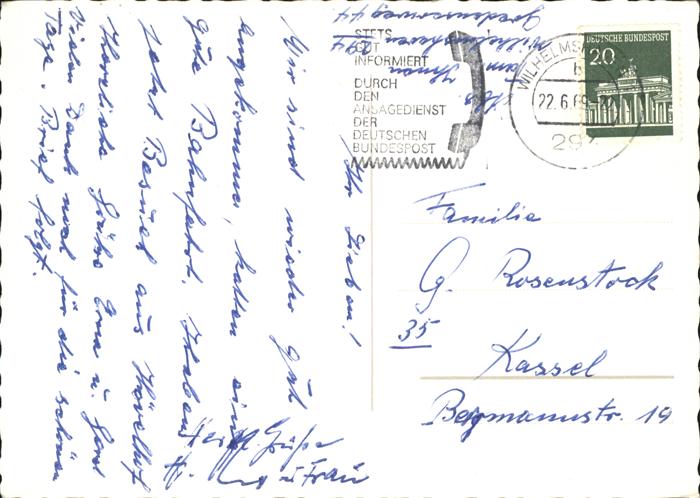 Wilhelmshaven
Goedensweg 44
STETS
GUT
INFORMIERT
DURCH
DEN
ANSAGEDIENST
DER
DEUTSCHEN
BUNDESPOST
WILHELMSH
b
22.6.69
294
DEUTSCHE BUNDESPOST
20
Ihr Lieben!
Wir sind wieder gut
angekommen, hatten eine
gute Bahnfahrt. Haben
jetzt Besuch aus Hövelhof
Herzliche Grüße Erna u. Gerd
Vielen Dank noch für die schönen
Tage. Brief folgt.
Herzl. Grüße
H. u Frau
Familie
G. Rosenstock
35
Kassel
Bergmannstr. 19